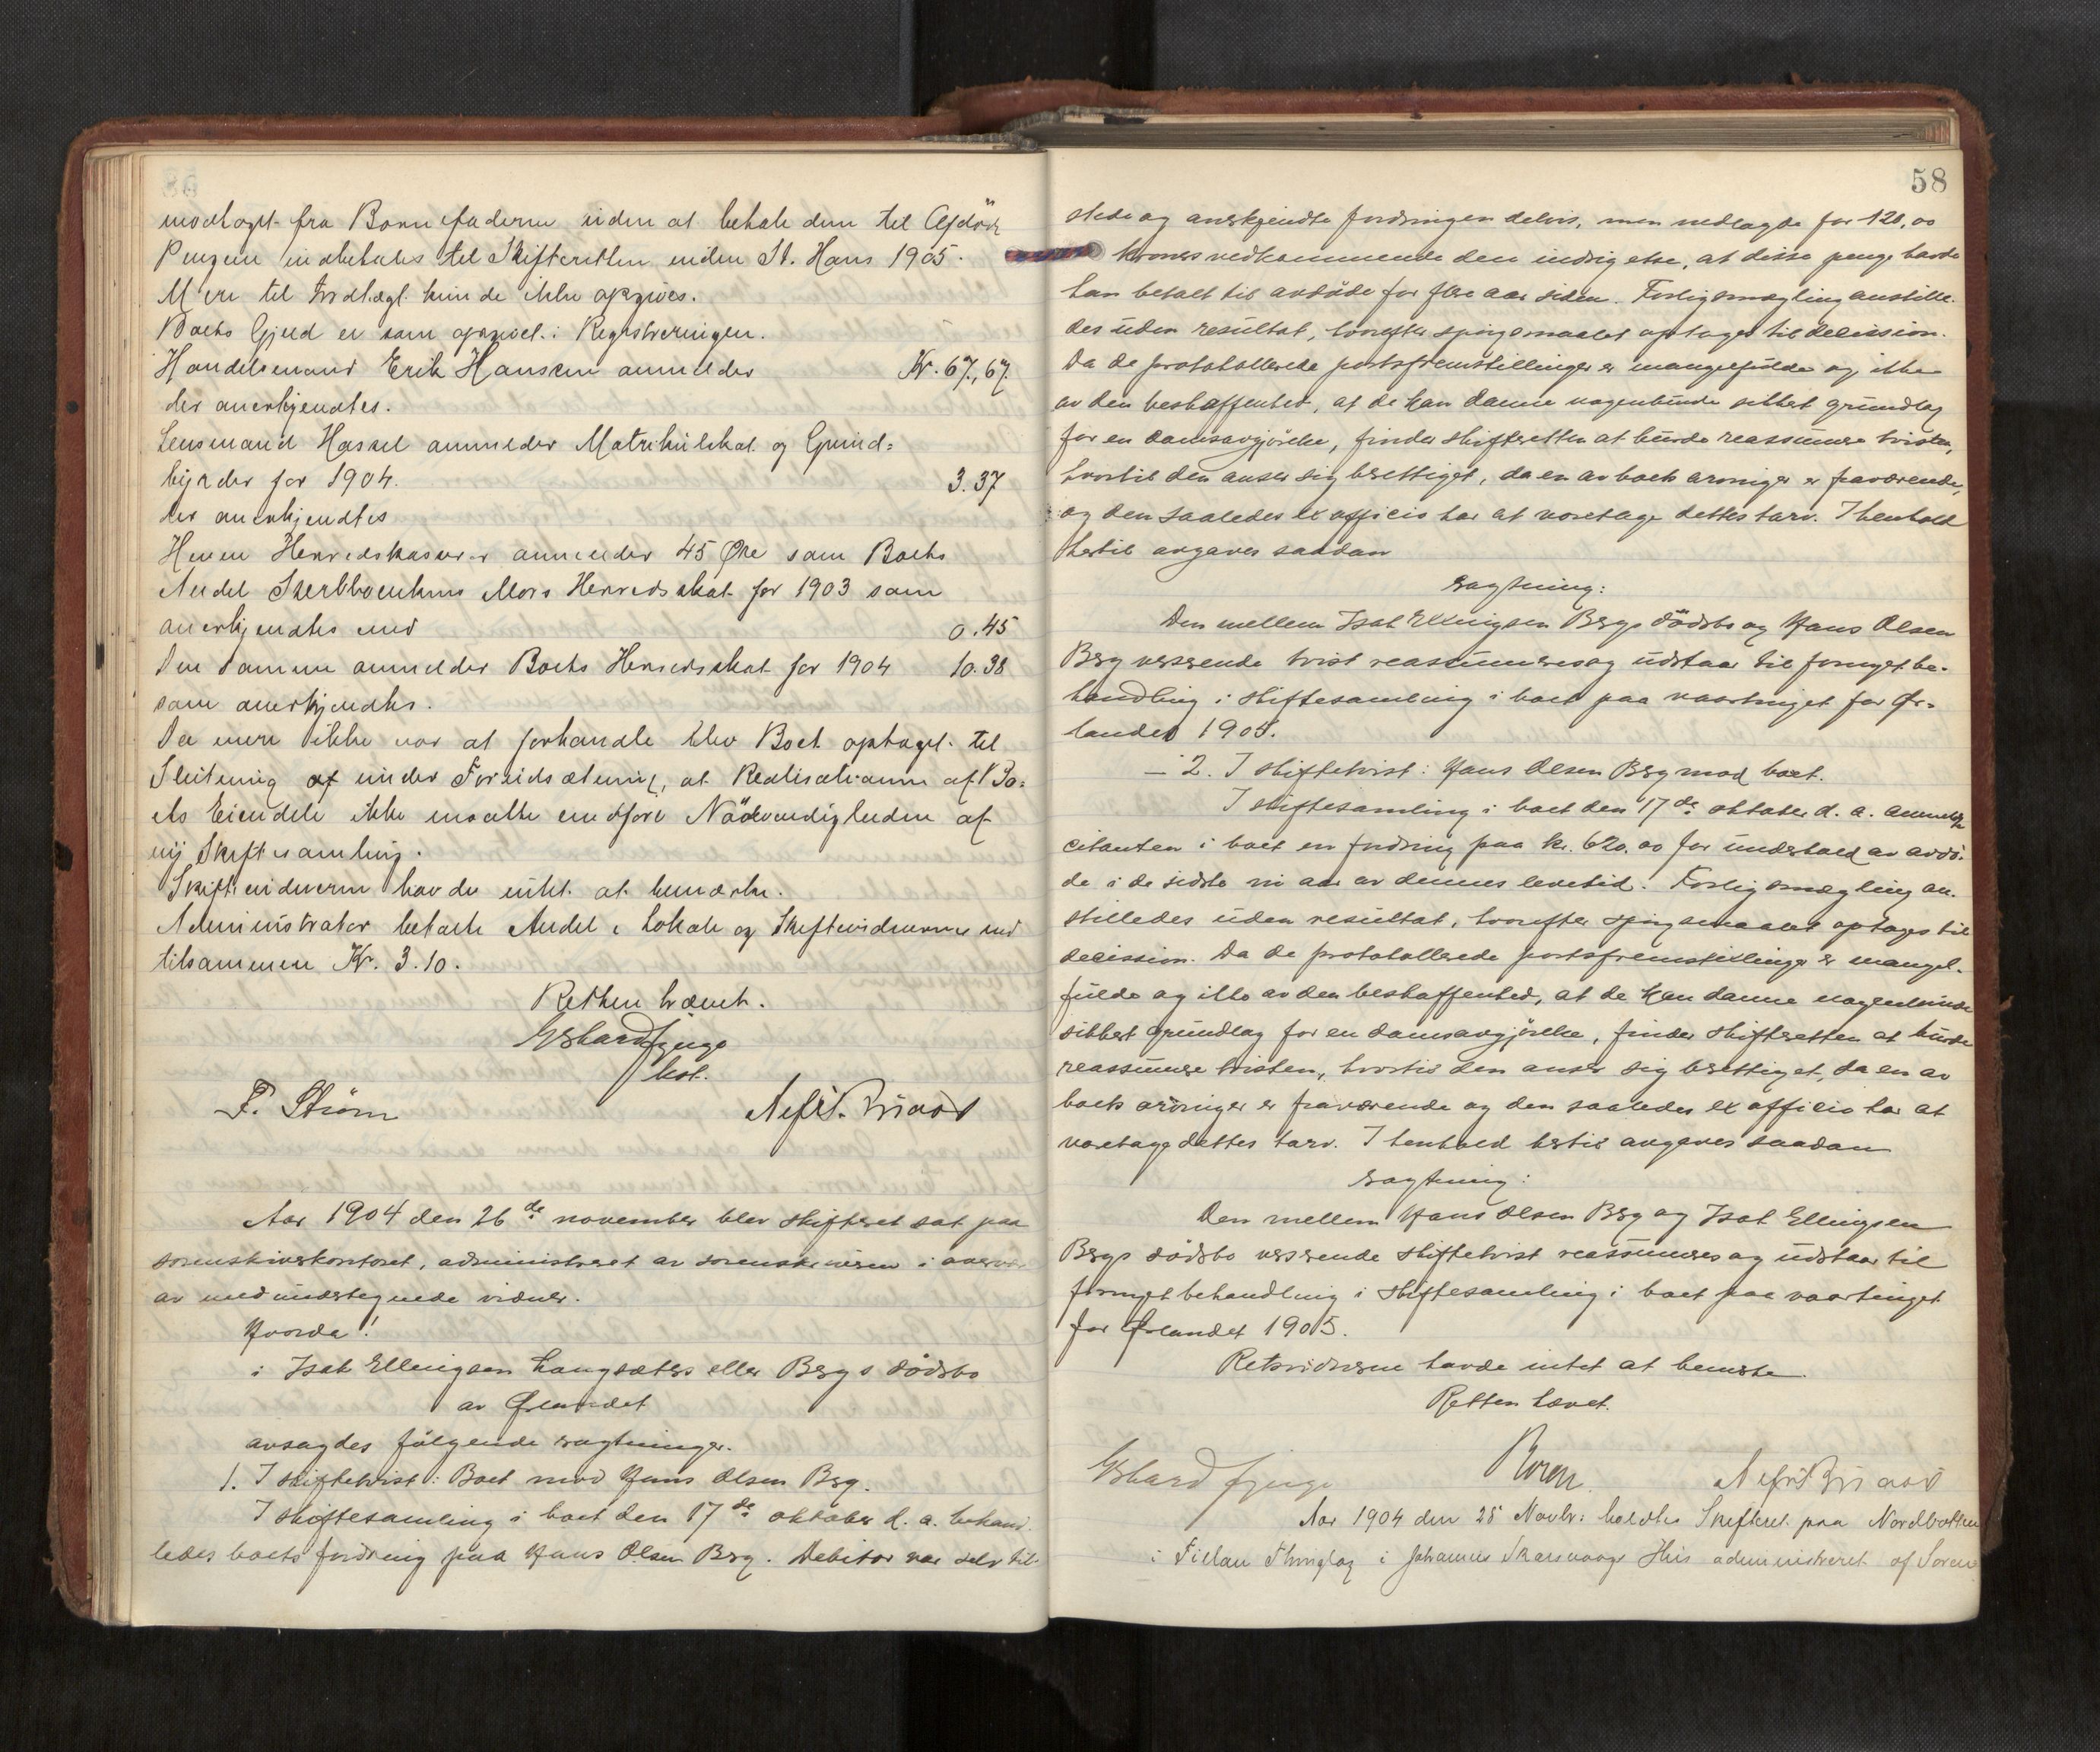 modtaget fra Barnefaderen uden at betale dem til Afdöde
Pengene indbetales til Skifteretten inden St. Hans 1905.
Mere til Indtægt kunde ikke opgives.
Boets Gjeld er som opgivet i Registreringen.
Handelsmand Erik Hansen anmelder Kr. 67,67.
der anerkjendtes.
Lensmand Hassel anmelder Matrikulskat og Grund=
byrder for 1904. 3.37
der anerkjendtes
Herredskasserer anmelder 45 Øre som Boets
Andel Sterkboenkens Mors Herredsskat for 1903 som
anerkjendtes med 0.45
Den samme anmelder Boets Herredsskat for 1904 10.38
som anerkjendtes.
Da mere ikke var at forhandle blev Boet optaget til
Slutning af under Forudsætning, at Realisationen af Bo=
ets Eiendele ikke maatte medføre Nödvendigheden af
ny Skiftesamling.
Skiftevidnerne havde intet at bemærke.
Administrator betalte Andel i Lokale og Skiftevidnerne med
tilsammen Kr. 3.10.
Retten hævet.
kst.
F. Strøm
Aar 1904 den 26de november blev skifteret sat paa
sorenskriverkontoret, administreret av sorenskriveren i overvær
av medundertegnede vidner.
Hvorda!
i Isak Ellingsen Langsæters eller Bergs dödsbo
av Ørlandet
avsagdes fölgende eragtninger.
1. I skiftetvist: Boet mod Hans Olsen Berg.
I skiftesamling i boet den 17de oktober d. a. behand-
ledes boets fordring paa Hans Olsen Berg. Debitor var selv til
58
stede og anerkjendte fordringen delvis, men nedlagde for 120,00
kroners vedkommende den indsigelse, at disse penge havde
han betalt til avdöde for flere aar siden. Forligsmægling anstille-
des uden resultat, hvorefter spörgsmaalet optoges til decission.
Da de protokollerede partsfremstillinger er mangelfulde og ikke
av den beskaffenhed, at de kan danne nogenlunde sikkert grundlag
for en domsavgjörelse, finder skifteretten at burde reassumere tvisten,
hvortil den anser sig berettiget, da en av boets arvinger er fraværende,
og den saaledes ex officio har at varetage dettes tarv. I henhold
hertil avgaves saadan
eragtning:
Den mellem Isak Ellingsen Bergs dödsbo og Hans Olsen
Berg verserende tvist reassumeres og udstaar til fornyet be-
handling i skiftesamling i boet paa vaartinget for Ør-
landet 1905.
2. I skiftetvist: Hans Olsen Berg mod boet.
I skiftesamling i boet den 17de oktober d. a. anmeldte
citanten i boet en fordring paa kr. 620.00 for underhold av avdö-
de i de sidste ni aar av dennes levetid. Forligsmægling an-
stilledes uden resultat, hvorefter spörgsmaalet optoges til
decission. Da de protokollerede partsfremstillinger er mangel-
fulde og ikke av den beskaffenhed, at de kan danne nogenlunde
sikkert grundlag for en domsavgjörelse, finder skifteretten at burde
reassumere tvisten, hvortil den anser sig berettiget, da en av
boets arvinger er fraværende og den saaledes ex officio har at
varetage dettes tarv. I henhold hertil avgaves saadan
eragtning:
Den mellem Hans Olsen Berg og Isak Ellingsen
Bergs dödsbo verserende skiftetvist reassumeres og udstaar til
fornyet behandling i skiftesamling i boet paa vaartinget
for Ørlandet 1905.
Retsvidnerne havde intet at bemerke.
Retten hævet.
Aar 1904 den 28 Novbr: holdtes Skifteret paa Nordbotten
i Fillan Thinglag i Johannes Skarsvaags Hus administreret af Soren